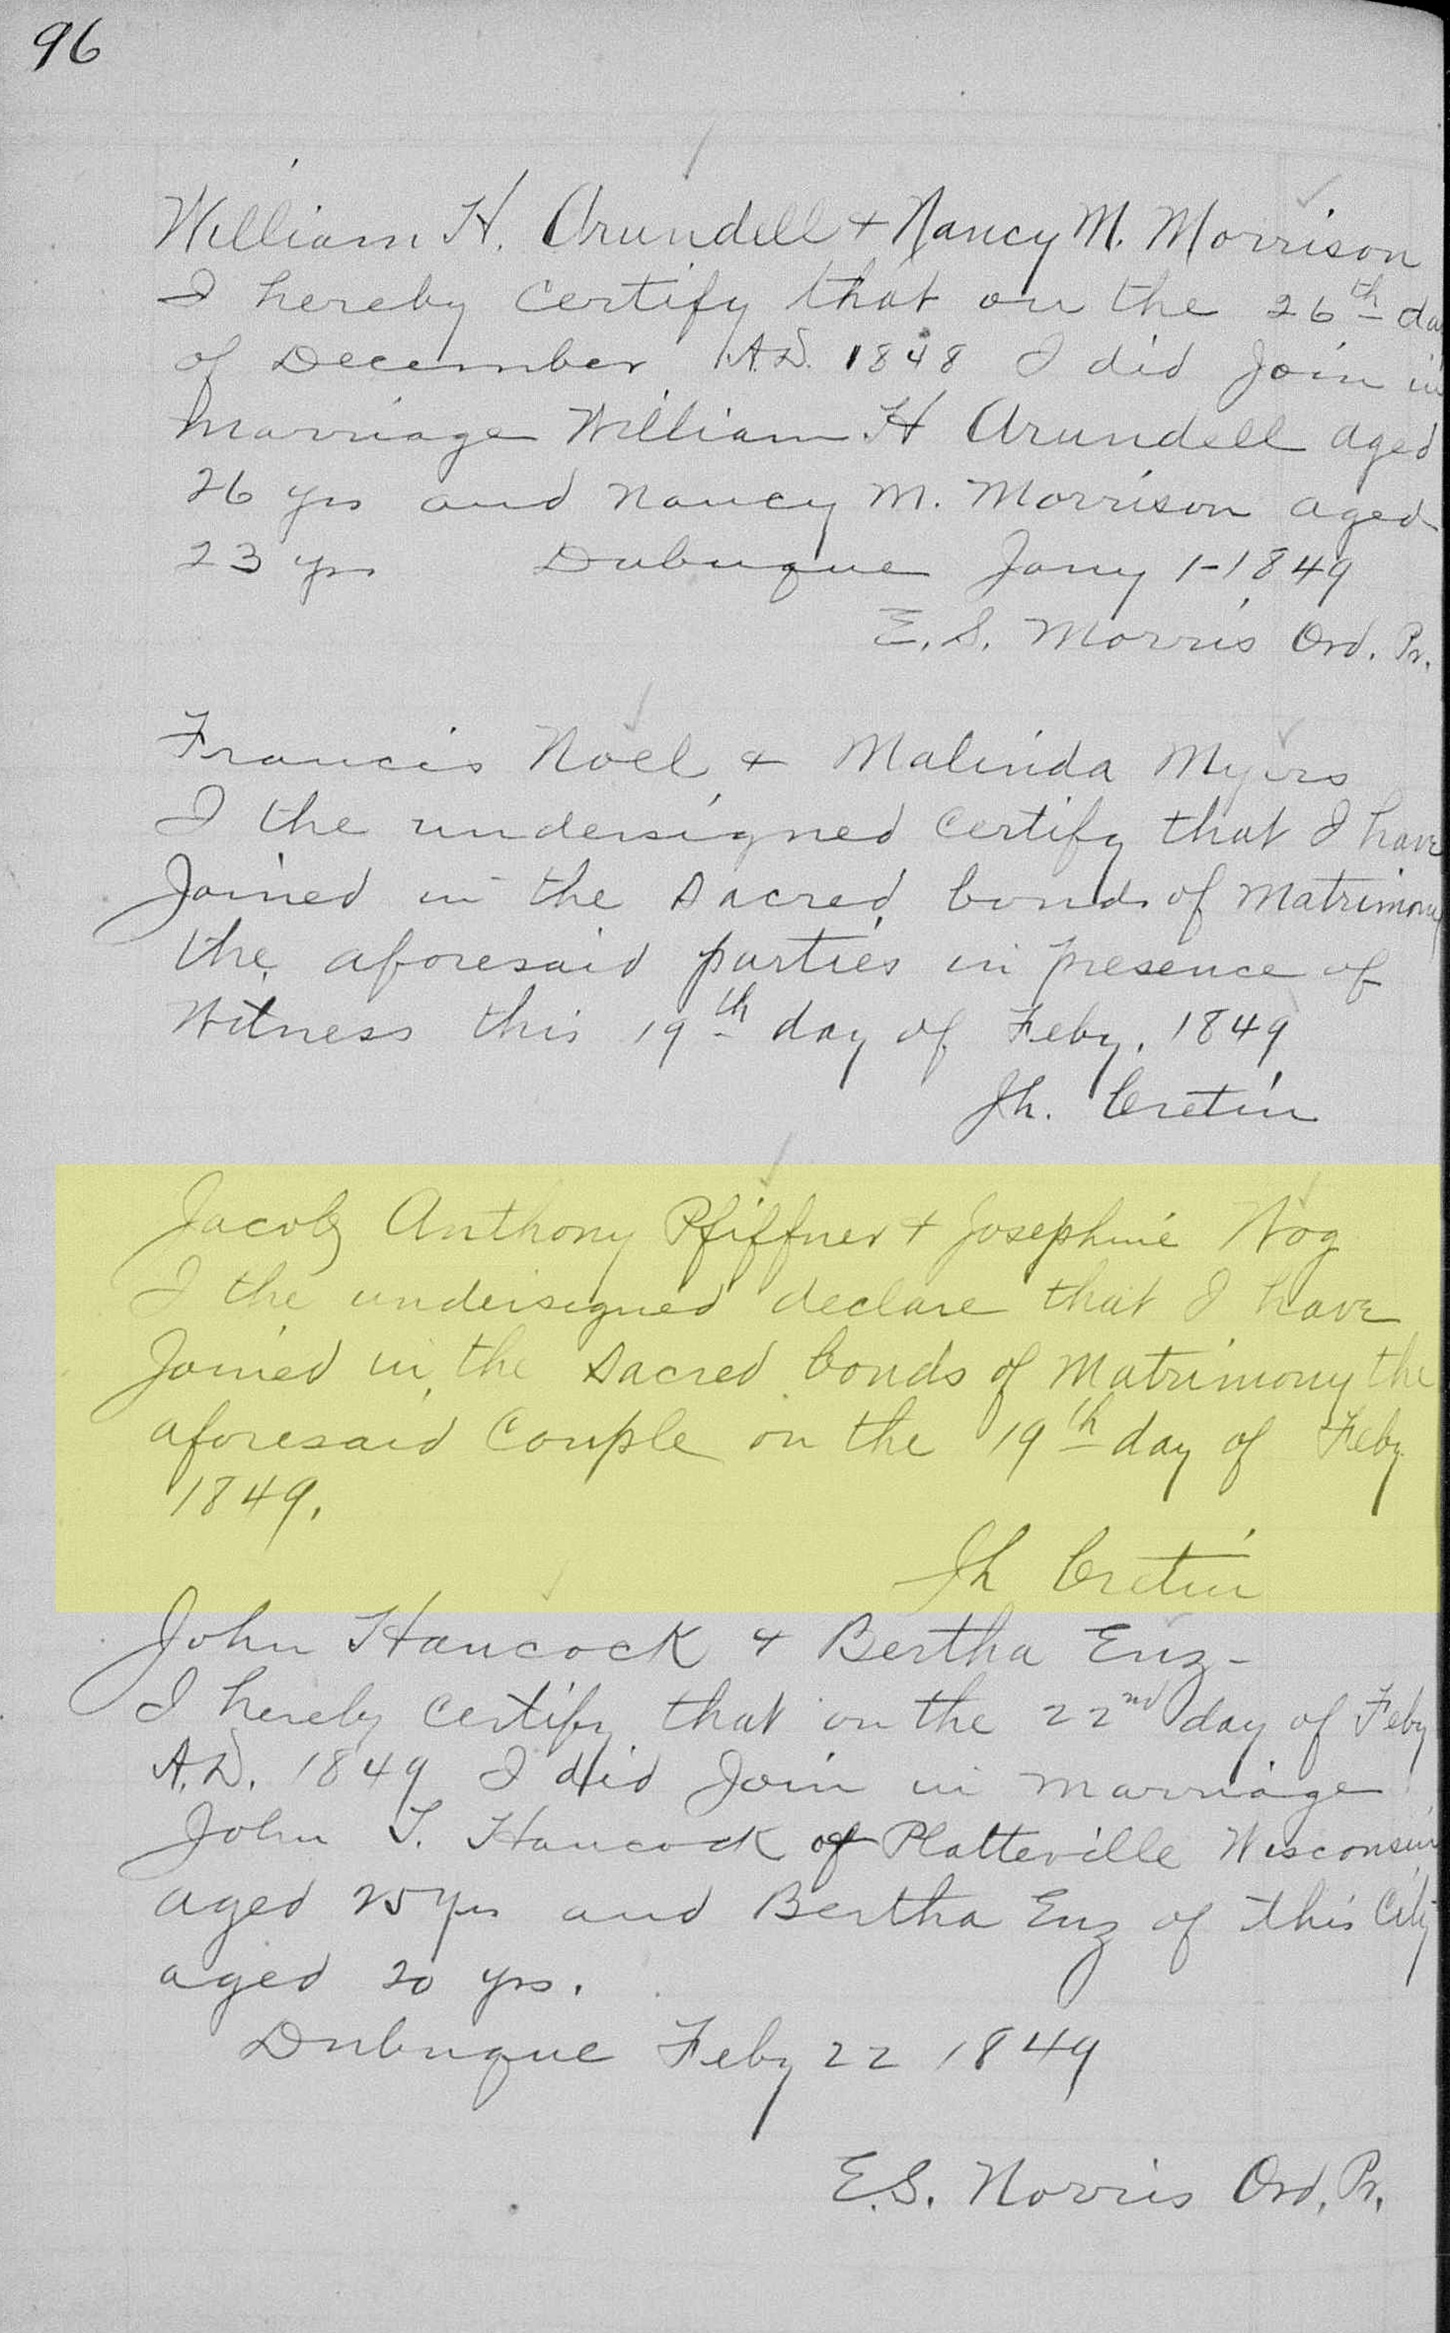 96
William H. Arundell + Nancy M. Morrison
I hereby certify that on the 26th da
of December A.D. 1848 I did join in
marriage William H Arundell aged
26 yrs and Nancy M. Morrison aged
23 yrs Dubuque Jany 1-1849
E. S. Morris Ord. Pr.
Francis Noel + Malinda Myers
I the undersigned certify that I have
Joined in the sacred bonds of Matrimony
the aforesaid parties in presence of
Witness this 19th day of Feby. 1849
Jh. Cretin
Jacob Anthony Pfiffner + Josephine Nog
I the undersigned declare that I have
Joined in the sacred bonds of Matrimony the
aforesaid Couple on the 19th day of Feby
1849.
Jh Cretin
John Hancock + Bertha Enz-
I hereby certify that on the 22nd day of Feby
A.D. 1849 I did Join in marriage
John T. Hancock of Platteville Wisconsin
aged 25 yrs and Bertha Enz of this City
aged 20 yrs.
Dubuque Feby 22 1849
E.S. Norris Ord. Pr.